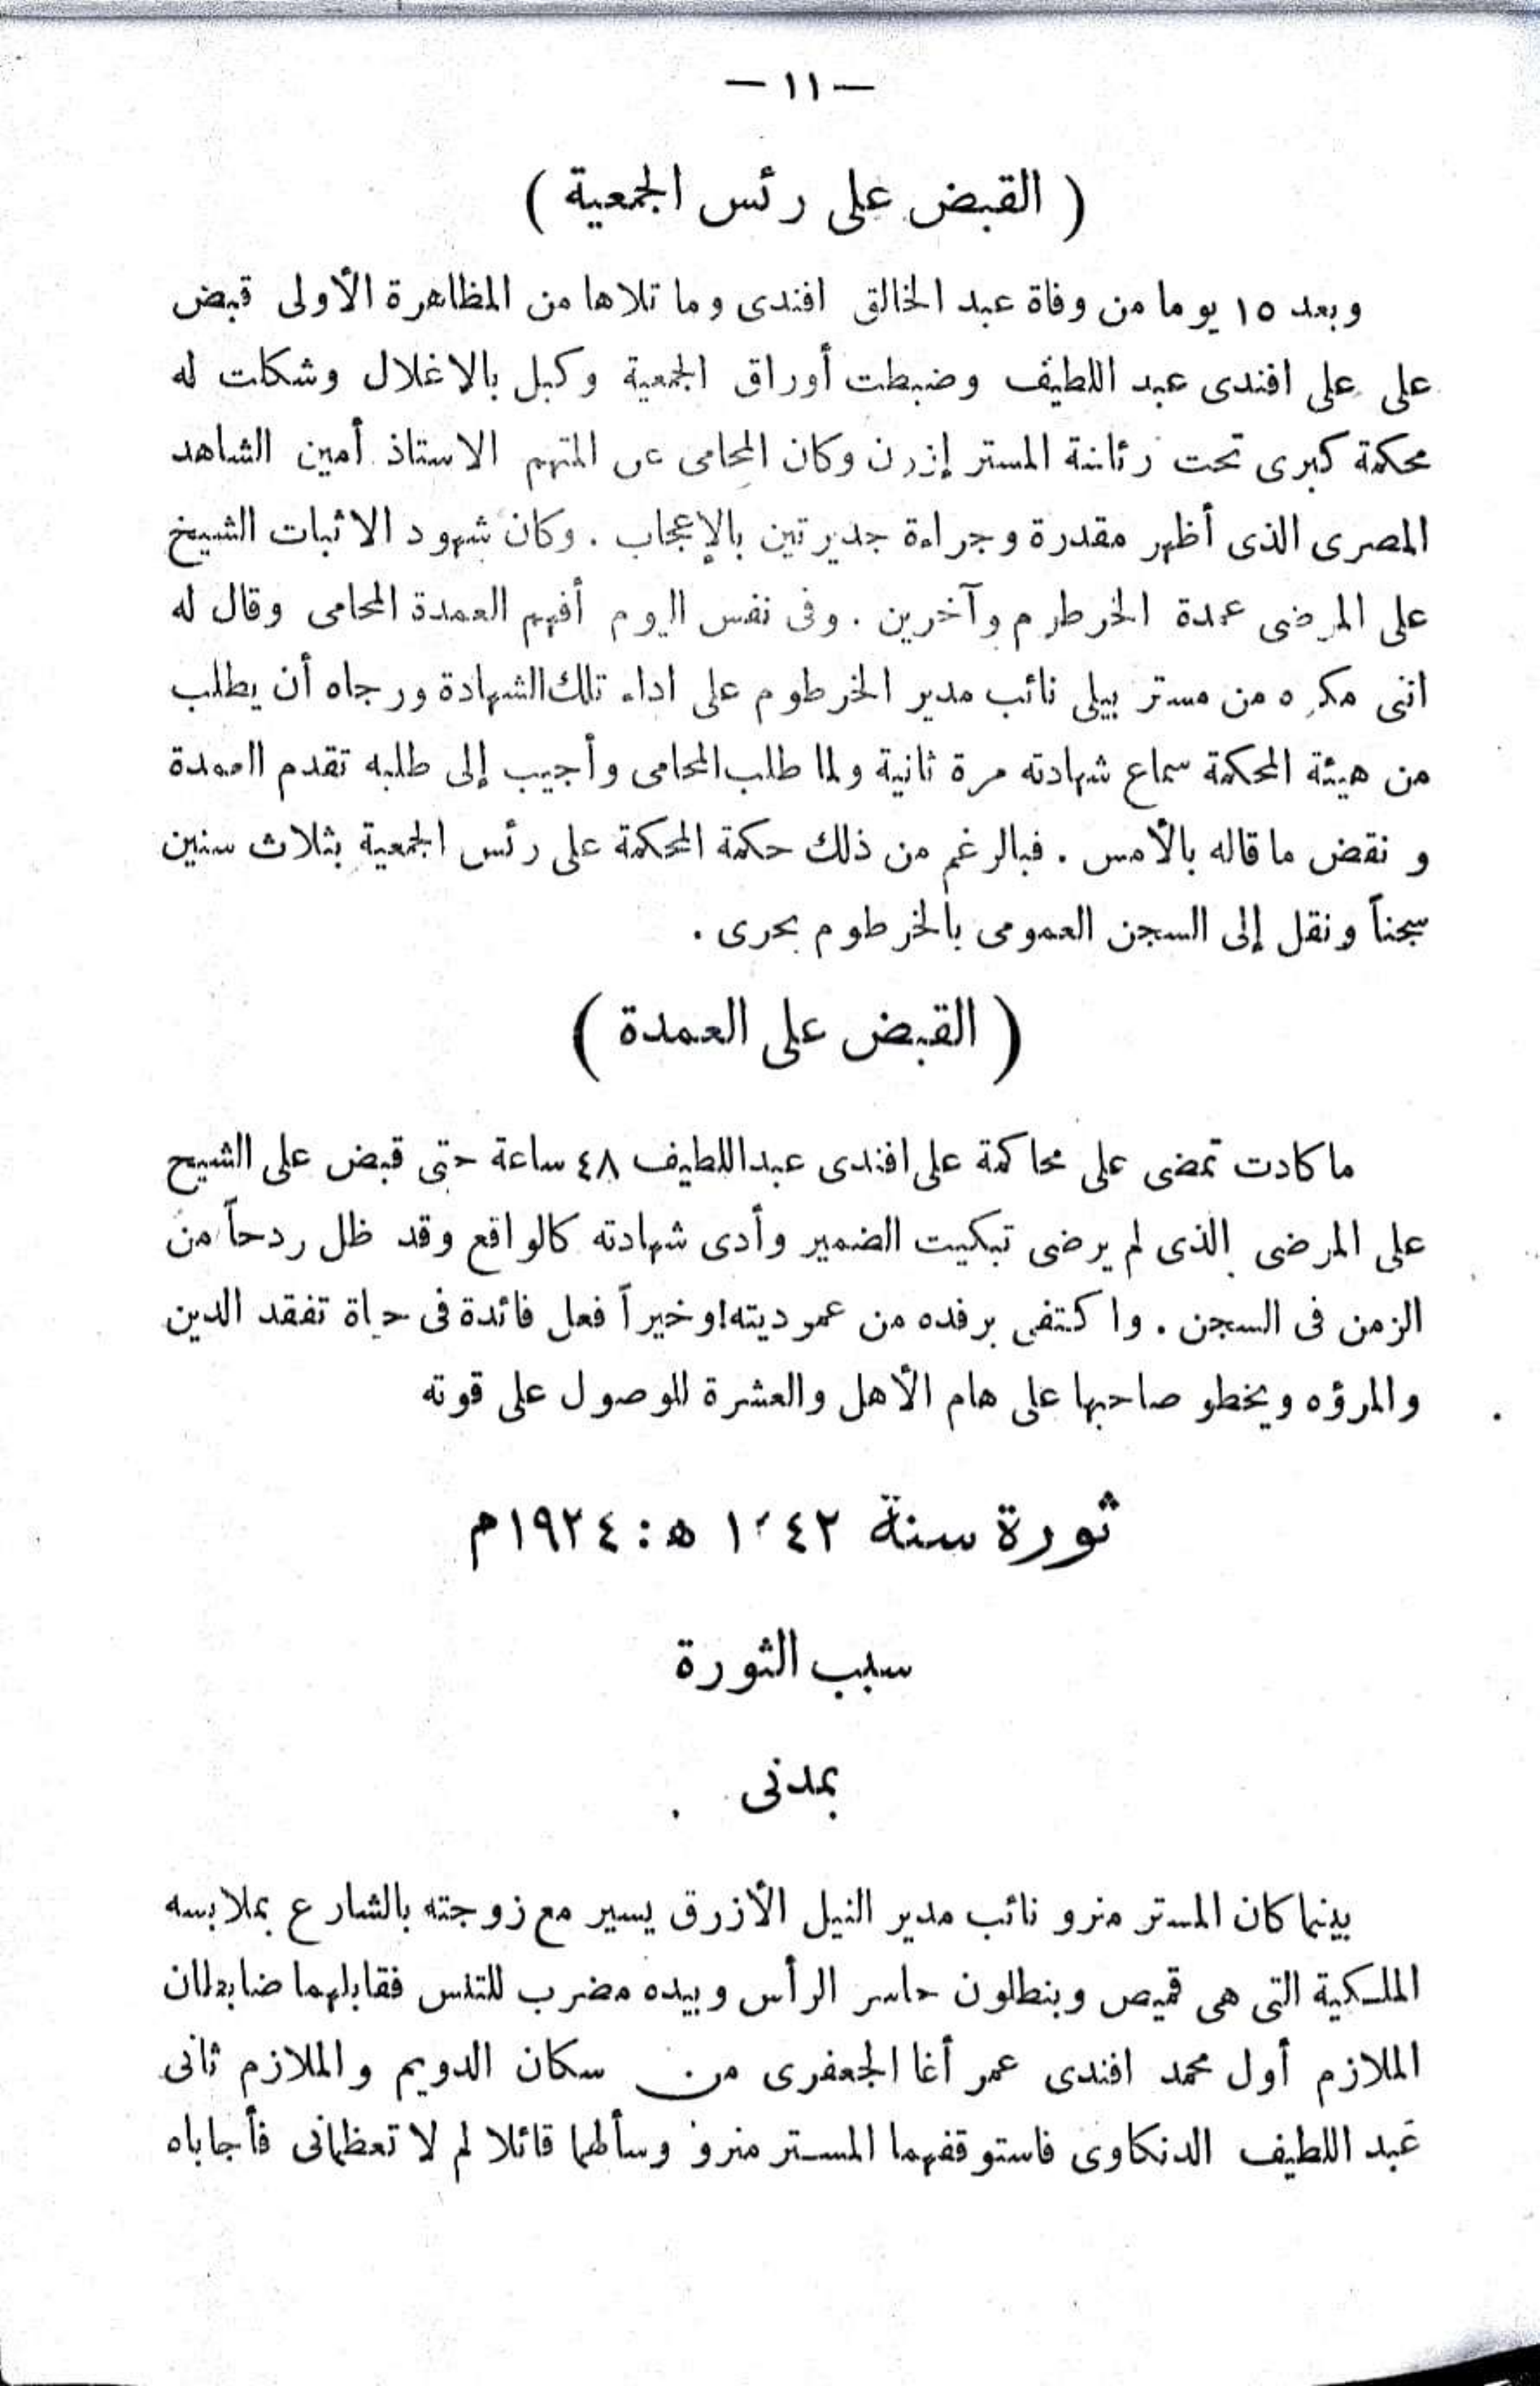 — ١١ —
( القبض على رئس الجمعية )
وبعد ١٥ يوما من وفاة عبد الخالق افندى وما تلاها من المظاهرة الأولى قبض
على على افندى عبد اللطيف وضبطت أوراق الجمعية وكبل بالاغلال وشكلت له
محكمة كبرى تحت رئاسة المستر إزرن وكان المحامى عن المتهم الاستاذ أمين الشاهد
المصرى الذى أظهر مقدرة وجراءة جديرتين بالإعجاب . وكان شهود الاثبات الشيخ
على المرضى عمدة الخرطوم وآخرين . وفى نفس اليوم أفهم العمدة المحامى وقال له
اننى مكره من مستر بيلى نائب مدير الخرطوم على اداء تلك الشهادة ورجاه أن يطلب
من هيئة المحكمة سماع شهادته مرة ثانية ولما طلب المحامى وأجيب إلى طلبه تقدم العمدة
ونقض ما قاله بالأمس . فبالرغم من ذلك حكمة المحكمة على رئس الجمعية بثلاث سنين
سجناً ونقل إلى السجن العمومى بالخرطوم بحرى .
( القبض على العمدة )
ما كادت تمضى على محاكمة على افندى عبد اللطيف ٤٨ ساعة حتى قبض على الشيح
على المرضى الذى لم يرضى تبكيت الضمير وأدى شهادته كالواقع وقد ظل ردحاً من
الزمن فى السجن . واكتفى برفده من عموديته اوخيراً فعل فائدة فى حياة تفقد الدين
والمرؤه ويخطو صاحبها على هام الأهل والعشرة للوصول على قوته
ثورة سنة ١٣٤٢ ه : ١٩٢٤م
سبب الثورة
بمدنى
بينما كان المستر منرو نائب مدير النيل الأزرق يسير مع زوجته بالشارع بملابسه
الملكية التى هى قميص وبنطلون حاسر الرأس وبيده مضرب للتنس فقابلهما ضابطان
الملازم أول محمد افندى عمر أغا الجعفرى من سكان الدويم والملازم ثانى
عبد اللطيف الدنكاوى فاستوقفهما المستر منرو وسألهما قائلا لم لا تعظمانى فأجاباه